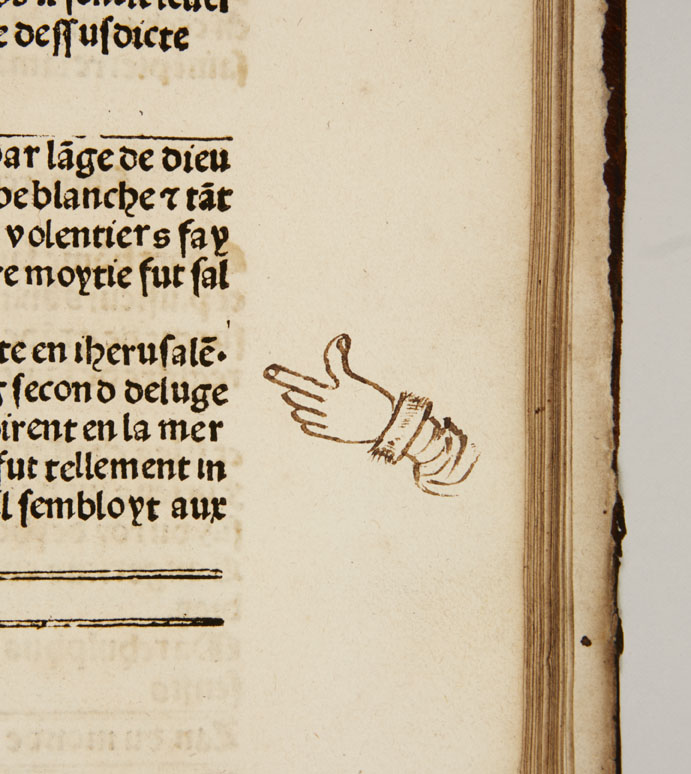 e dessusdicte
ar lãge de dieu
be blanche ⁊ tãt
volentiers fay
re moytie fut sal
te en iherusalẽ.
second deluge
irent en la mer
fut tellement in
l sembloyt aux